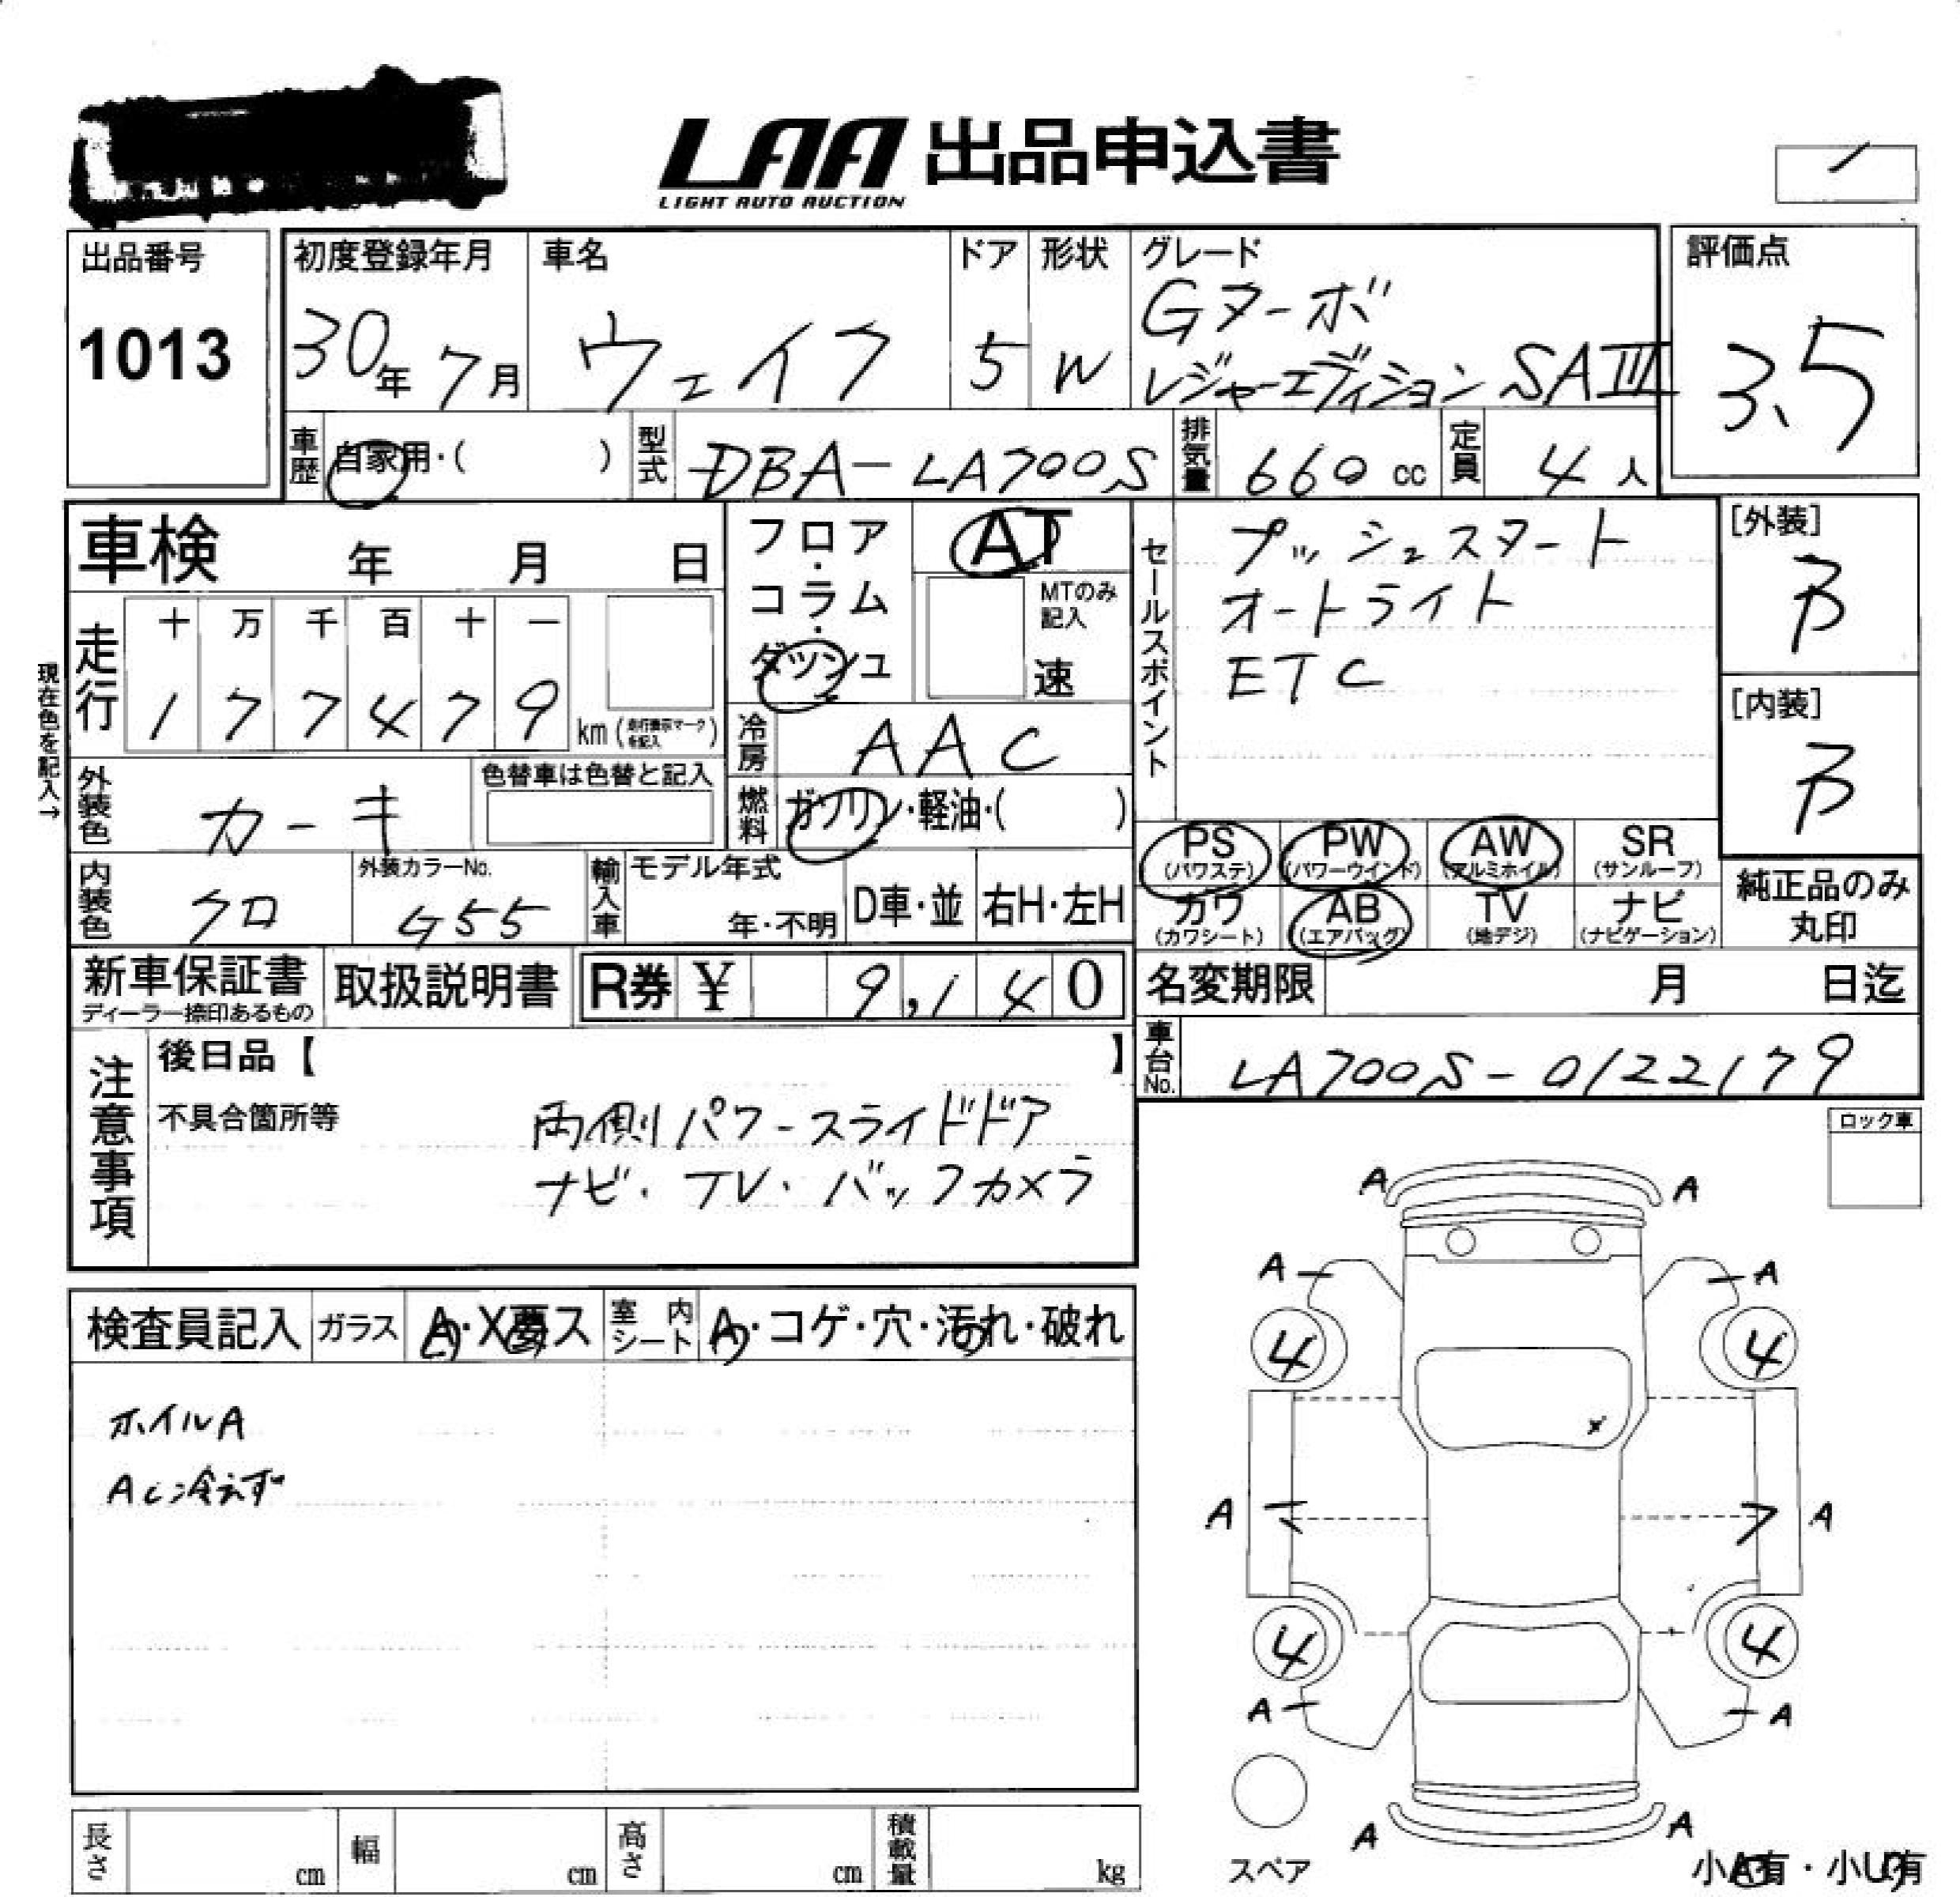 LAA 出品申込書
LIGHT AUTO AUCTION
出品番号
1013
初度登録年月
30年 7月
車名
ウェイク
ドア
5
形状
W
グレード
Gターボ
レジャーエディション SAⅢ
評価点
3.5
車歴
自家用・( )
型式
DBA-LA700S
排気量
660 cc
定員
4 人
車検 年 月 日
フロア・コラム・ダッシュ
AT
MTのみ記入
速
セールスポイント
プッシュスタート
オートライト
ETC
[外装]
B
[内装]
B
現在色を記入→
走行
十 万 千 百 十 一
1 7 7 4 7 9 km (走行表示マークを記入)
冷房
AAC
外装色
カーキ
色替車は色替と記入
燃料
ガソリン・軽油・( )
PS (パワステ)
PW (パワーウインド)
AW (アルミホイル)
SR (サンルーフ)
カワ (カワシート)
AB (エアバッグ)
TV (地デジ)
ナビ (ナビゲーション)
純正品のみ丸印
内装色
クロ
外装カラーNo.
G55
輸入車
モデル年式
年・不明
D車・並
右H・左H
新車保証書
ディーラー捺印あるもの
取扱説明書
R券 ¥ 9,140
名変期限 月 日迄
車台No.
LA700S-0122179
注意事項
後日品【 】
不具合箇所等
両側パワースライドドア
ナビ・TV・バックカメラ
ロック車
検査員記入
ガラス
A・X要ス
室内シート
A・コゲ・穴・汚れ・破れ
ホイルA
AC冷えず
A A
A A
4 4
x
A A
4 4
A A
A A
スペア
小A有・小U有
長さ cm
幅 cm
高さ cm
積載量 kg